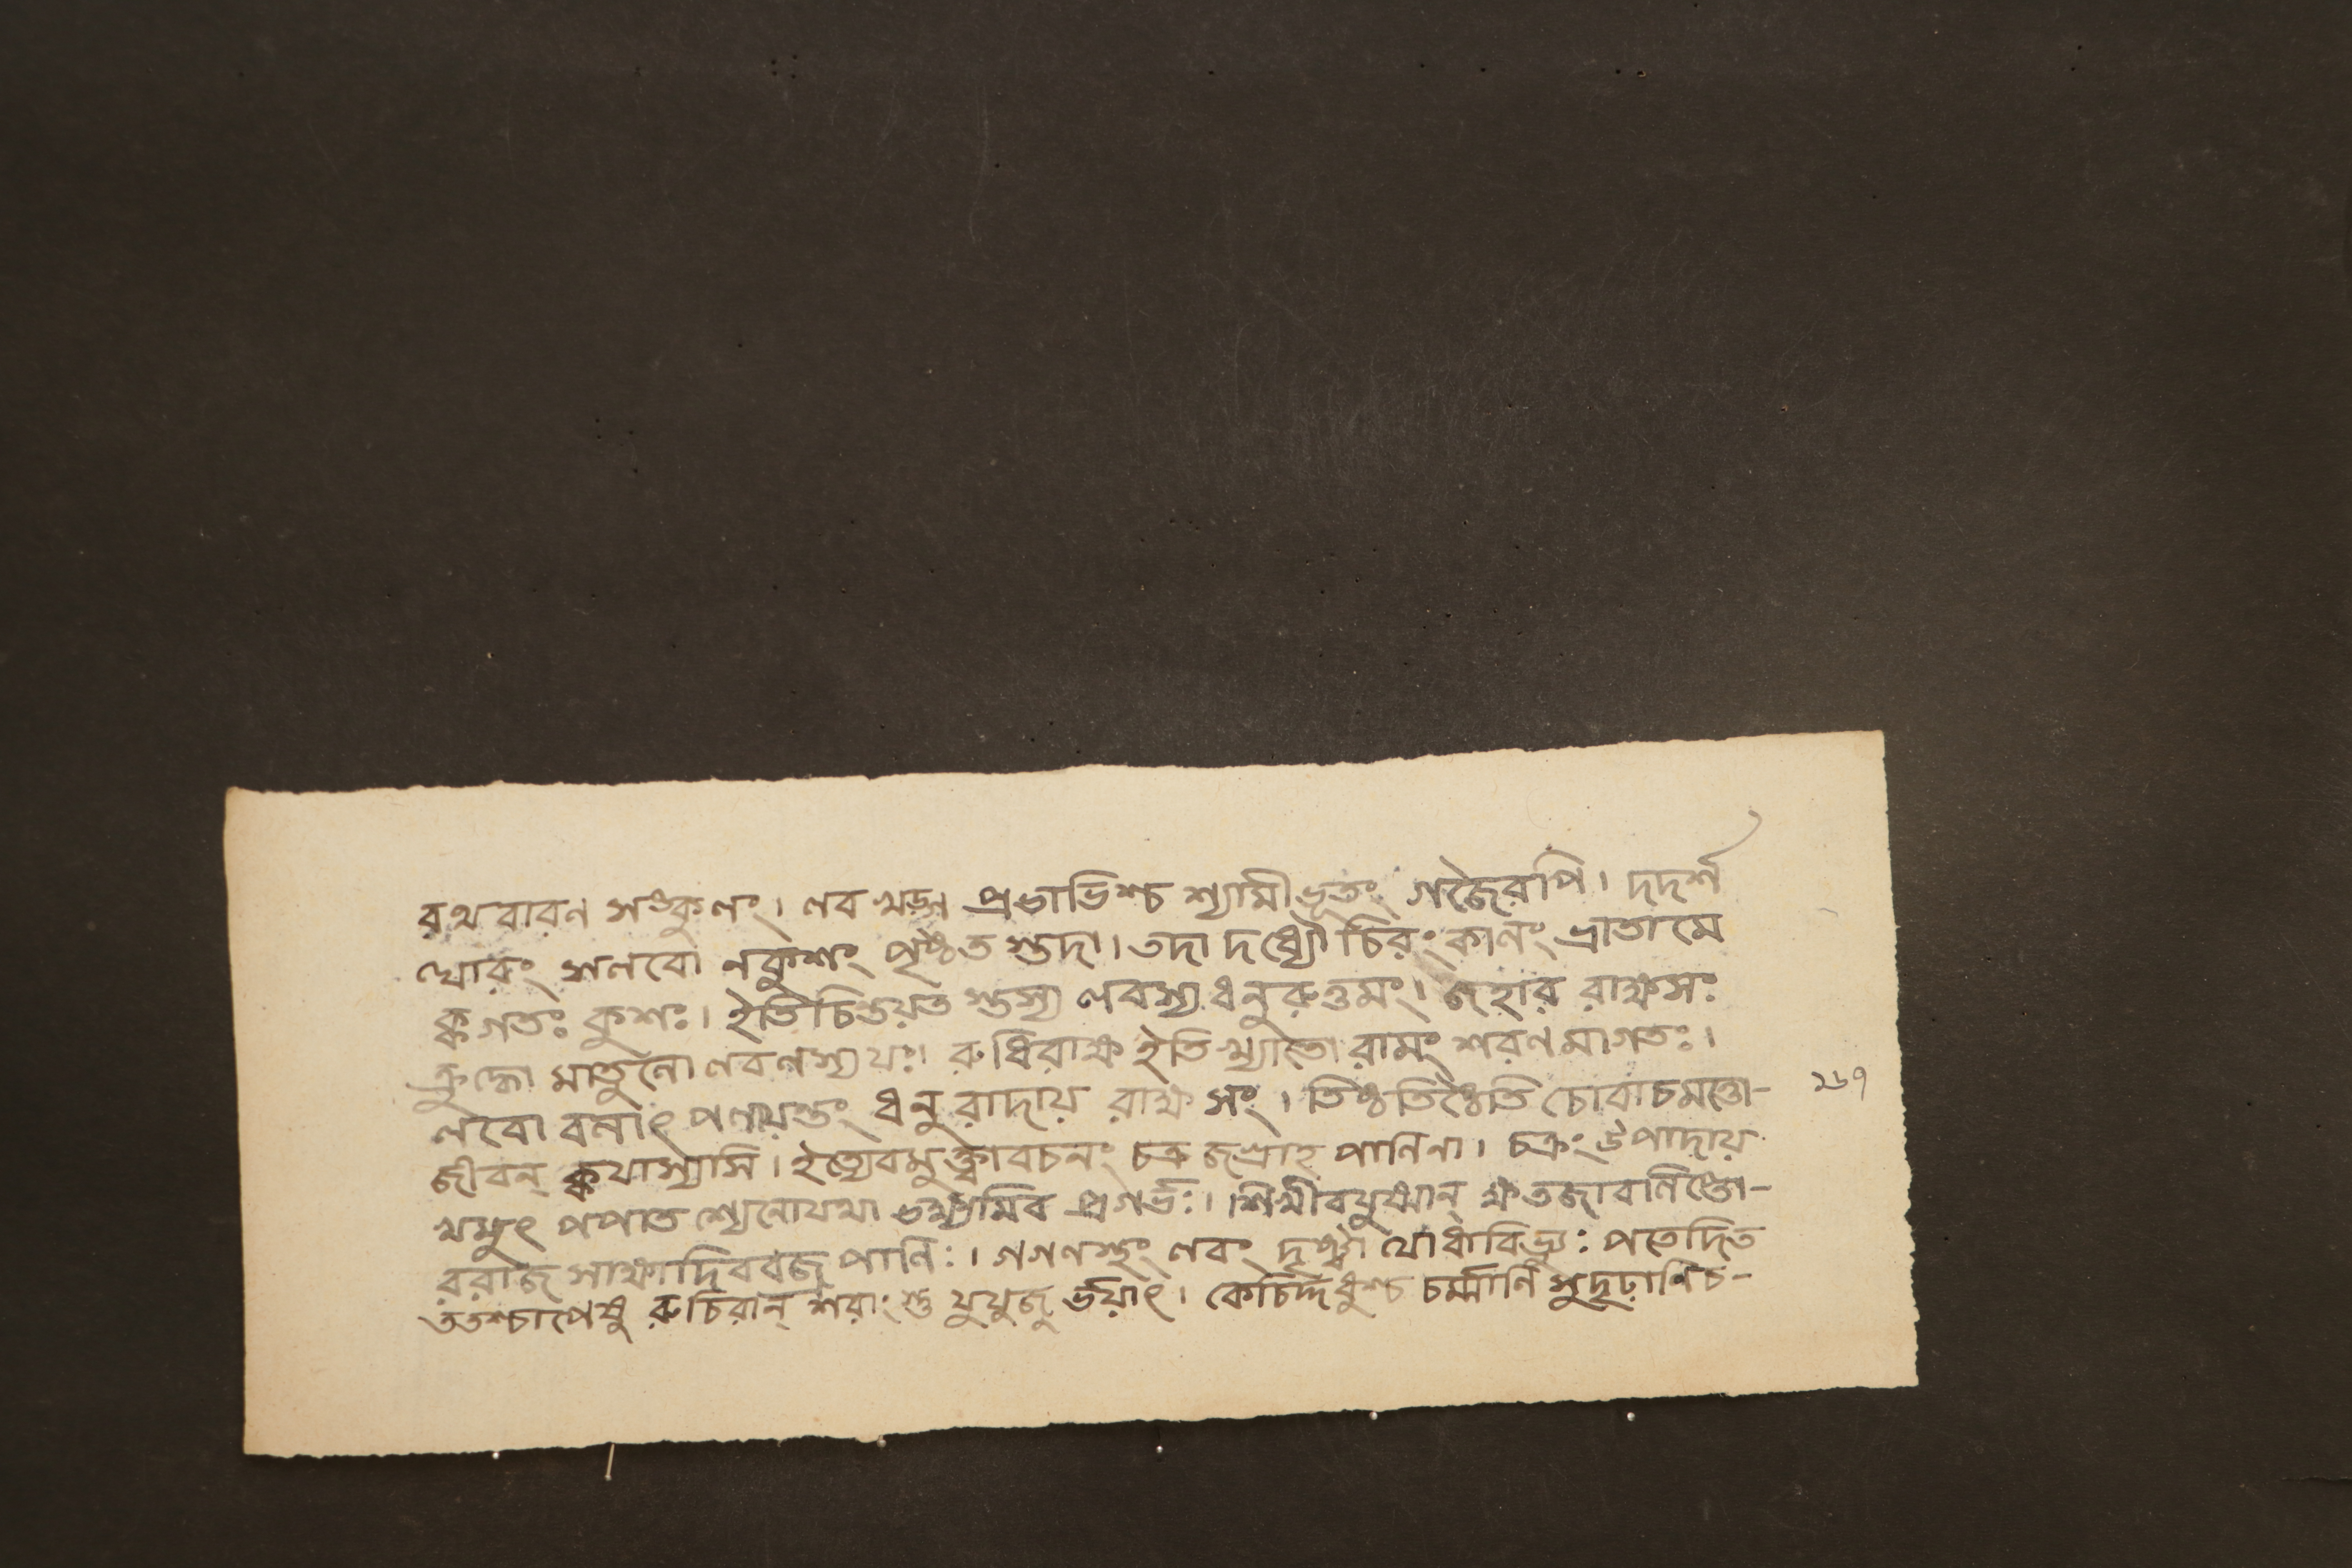 রথবারণ সঙ্কুলং। লব খড়্গ প্রভাভিশ্চ শ্যামীভূতং গজৈরপি। দদর্শ
ঘোরং সলবো নকুশং পৃষ্ঠত স্তদা। তদা দধ্যৌ চিরং কালং ভ্রাতামে
ক্ক গতঃ কুশঃ। ইতি চিন্তয়ত স্তস্য লবস্য ধনুরুত্তমং। জহার রাক্ষসঃ
ক্রুদ্ধো মাতুলো লবণস্য যঃ। রুধিরাক্ষ ইতি খ্যাতো রামং শরণমাগতঃ।
লবো বলাৎ পলায়ন্তং ধনুরাদায় রাক্ষসং। তিষ্ঠতিষ্ঠেতি চোবাচমত্তো-
জীবন্ ক্কযাস্যাসি। ইত্যেবমুক্ত্বাবচনং চক্র জগ্রাহ পাণিনা। চক্রং উপাদায়
খমুৎ পপাত শ্যেনোযথা ভক্ষ্যমিব প্রগর্ভঃ। শিখীবযুষ্মান্ ক্ষতজাবলিপ্তো-
ররাজ সাক্ষাদিববজ্র পাণিঃ। গগণস্থং লবং দৃষ্ট্বা যোধাবিভ্যুঃ পতেদিত
ততশ্চাপেষু রুচিরান্ শরাংস্তু যুযুজু র্ভয়াৎ। কেচির্দ্দধুশ্চ চর্ম্মাণি সুদৃঢ়াণিচ-
২৬৭